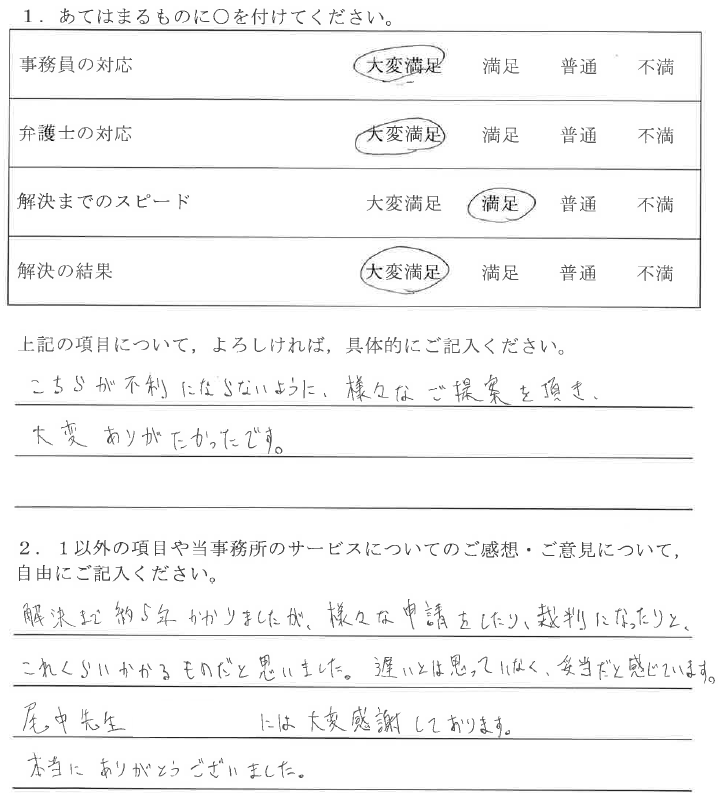 1．あてはまるものに○を付けてください。
事務員の対応　大変満足　満足　普通　不満
弁護士の対応　大変満足　満足　普通　不満
解決までのスピード　大変満足　満足　普通　不満
解決の結果　大変満足　満足　普通　不満
上記の項目について，よろしければ，具体的にご記入ください。
こちらが不利にならないように、様々なご提案を頂き、
大変ありがたかったです。
2．1以外の項目や当事務所のサービスについてのご感想・ご意見について，
自由にご記入ください。
解決まで約5年かかりましたが、様々な申請をしたり、裁判になったりと、
これくらいかかるものだと思いました。遅いとは思っていなく、妥当だと感じています。
尾中先生　には大変感謝しております。
本当にありがとうございました。